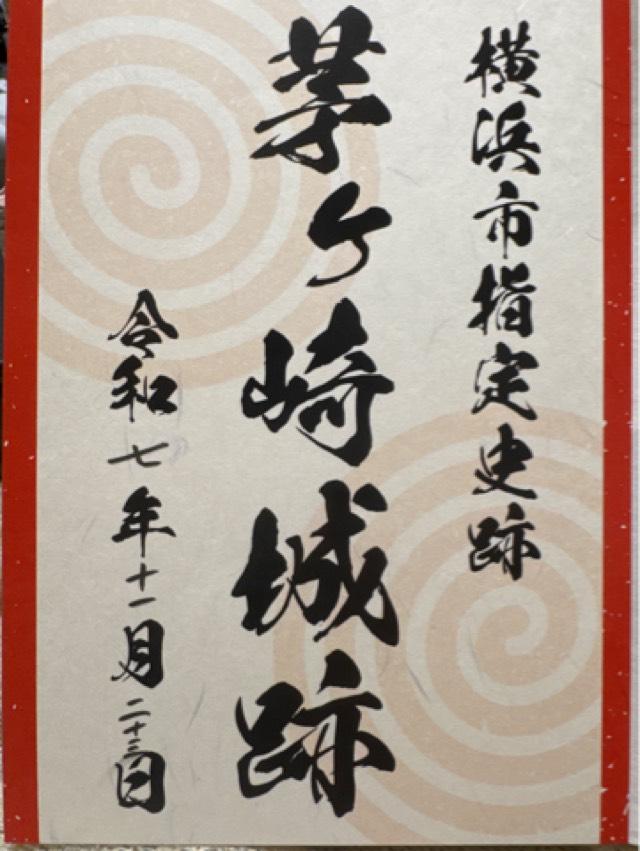 横浜市指定史跡
茅ヶ崎城跡
令和七年十一月二十三日